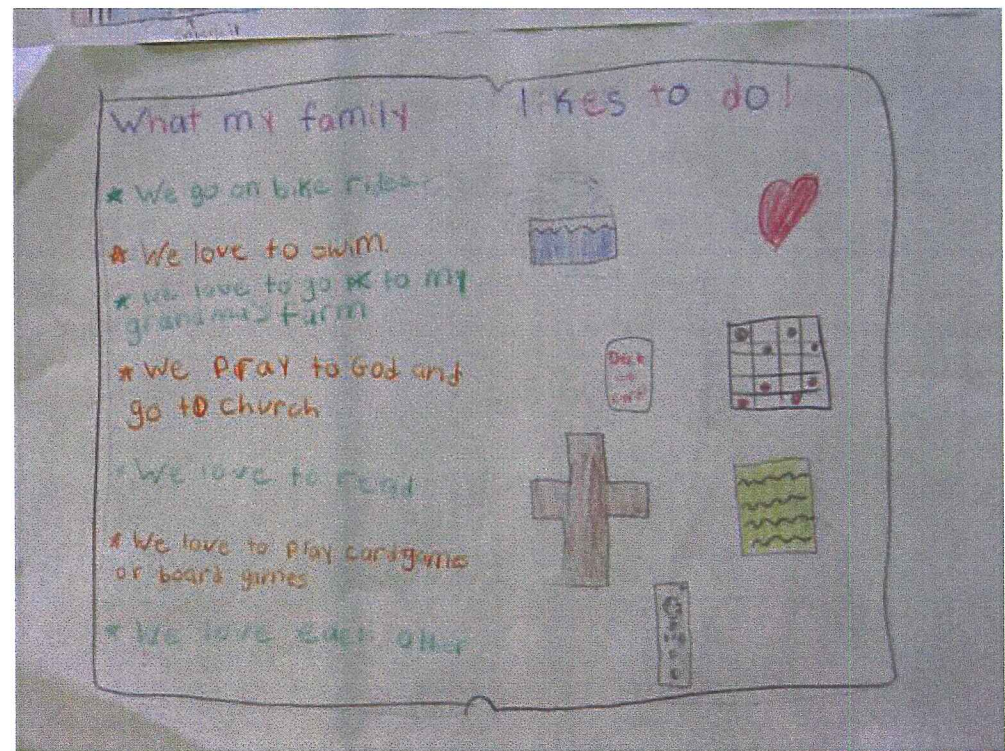 What my family likes to do!
* We go on bike rides
* We love to swim.
* We love to go to my
grandma's farm
* We pray to God and
go to church
* We love to read
* We love to play card games
or board games
* We love each other